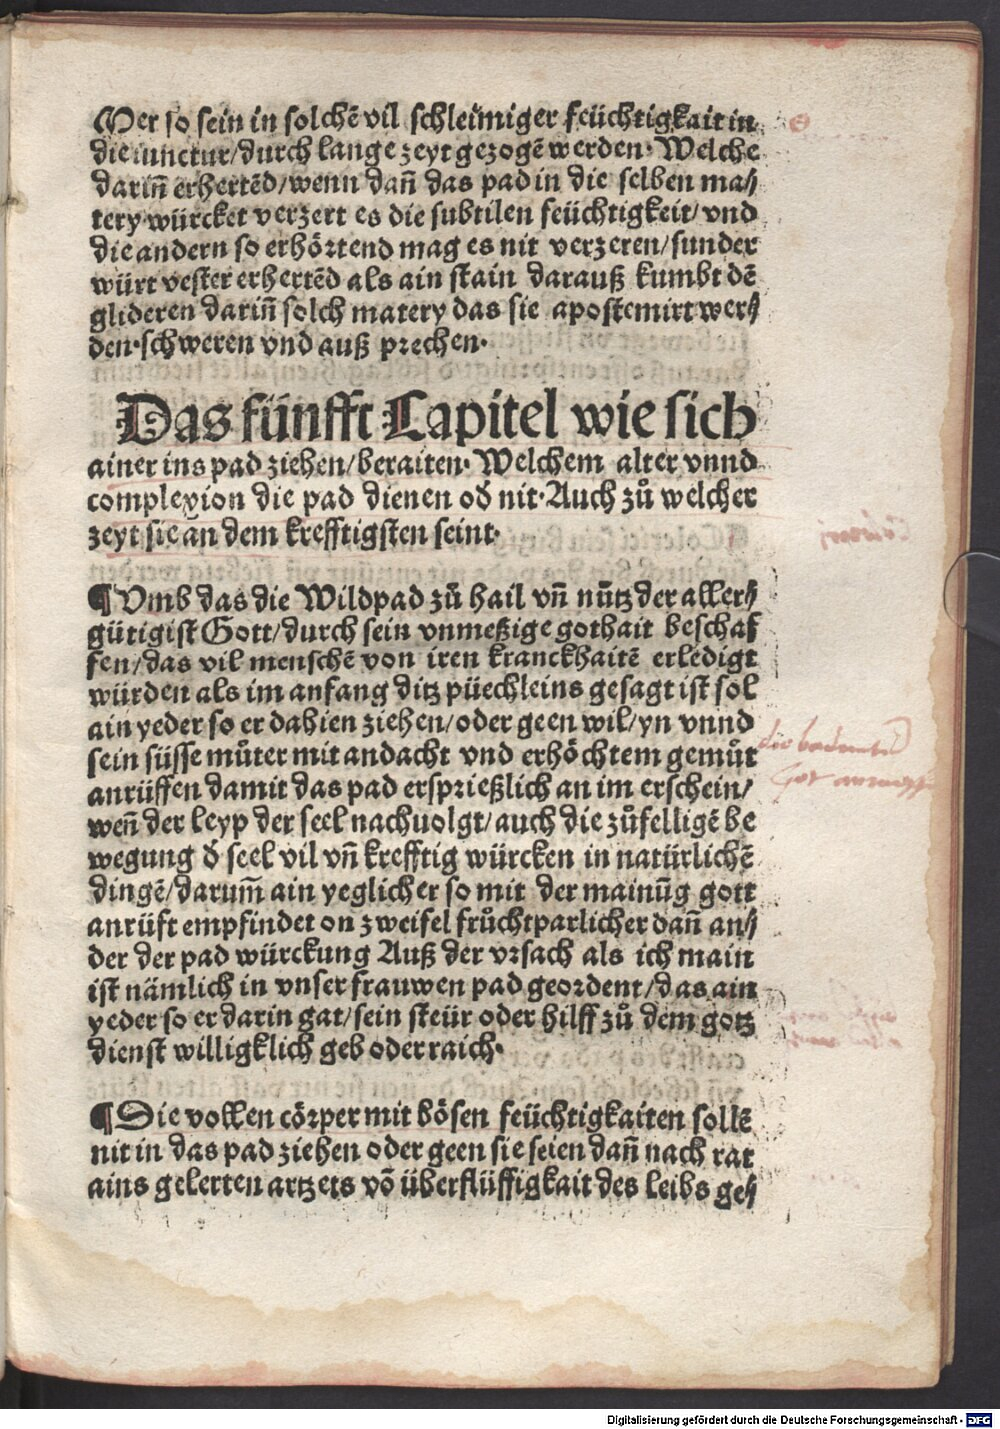 Wer so sein in solchē vil schleimiger feüchtigkait in
die iunctur/durch lange zeyt gezogē werden· Welche
dariñ erhertēd/wenn dañ das pad in die selben ma⸗
tery würcket verzert es die subtilen feüchtigkeit/vnd
die andern so erhörtend mag es nit verzeren/sunder
würt vester erhertēd als ain stain darauß kumbt dē
glideren dariñ solch matery das sie apostemirt wer⸗
den·schweren vnd auß prechen·
Das fünfft Capitel wie sich
ainer ins pad ziehen/beraiten· Welchem alter vnnd
complexion die pad dienen od̄ nit·Auch zů welcher
zeyt sie an dem krefftigsten seint·
¶ Vmb das die Wildpad zů hail vñ nůtz der aller⸗
gütigist Gott/durch sein vnmeßige gothait beschaf
fen/das vil menschē von iren kranckhaitē erledigt
würden als im anfang ditz püechleins gesagt ist sol
ain yeder so er dahien ziehen/oder geen wil/yn vnnd
sein süsse můter mit andacht vnd erhöchtem gemůt
anrüffen damit das pad ersprießlich an im erschein/
weñ der leyp der seel nachuolgt/auch die zůfelligē be
wegung d̄ seel vil vñ krefftig würcken in natürlichē
dingē/darum̄ ain yeglicher so mit der mainūg gott
anrüft empfindet on zweifel frůchtparlicher dañ an⸗
der der pad würckung Auß der vrsach als ich main
ist nämlich in vnser frauwen pad geordent/das ain
yeder so er darin gat/sein steür oder hilff zů dem gotz
dienst williglklich geb oder raich·
¶ Die vollen cörper mit bösen feüchtigkaiten sollē
nit in das pad ziehen oder geen sie seien dañ nach rat
ains gelerten artzets vō überflüffigkait des leibs ge⸗
Digitalisierung gefördert durch die Deutsche Forschungsgemeinschaft - DFG